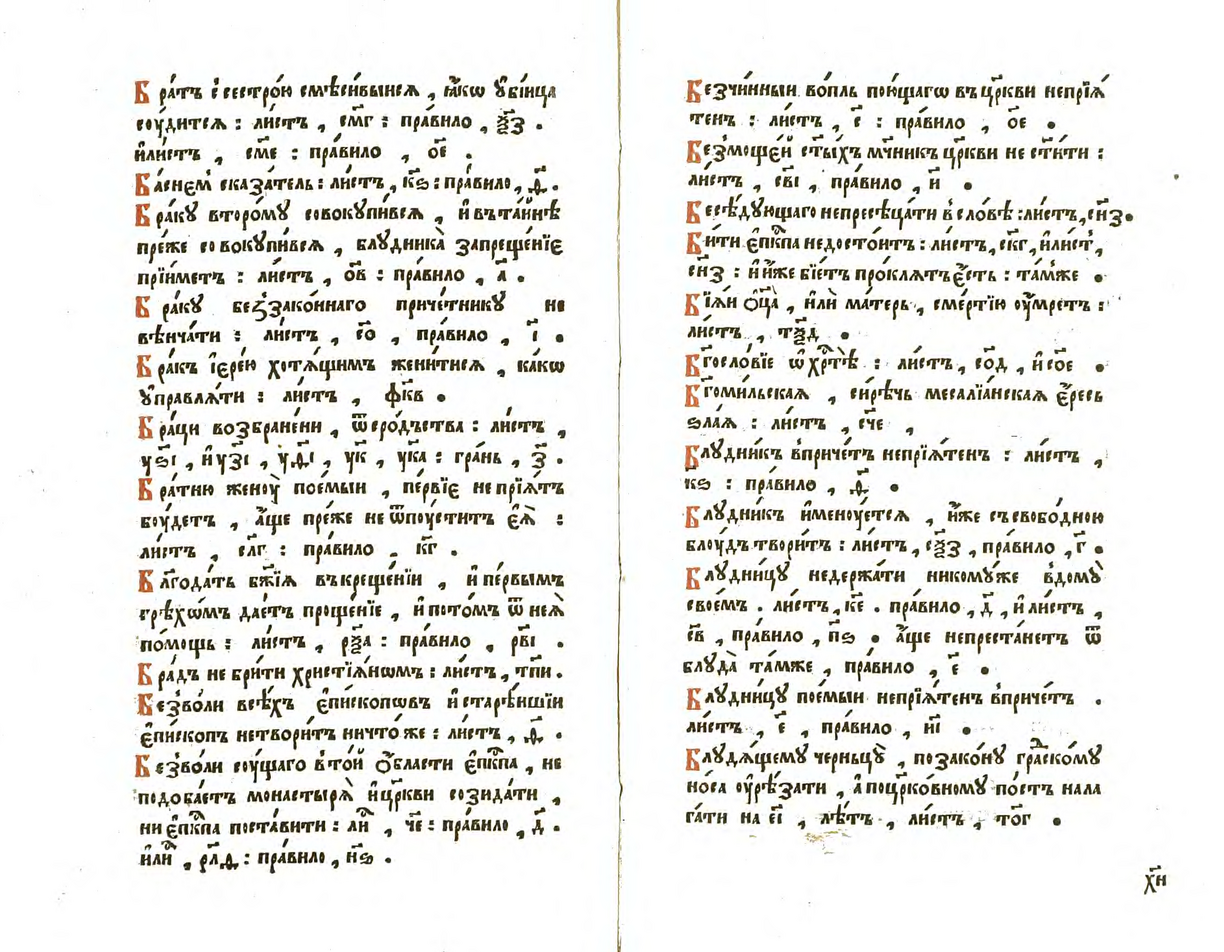 Бра́тъ с̾сестро́ю смѣси́выисѧ , ꙗ҆́кѡ ᲂу҆бі́ица
сꙋ́дитсѧ : ли́стъ , смг҃ : пра́вило , ѯ҃з .
и҆ли́стъ , сме҃ : пра́вило , ое҃ .
Ба́снемъ сказа́тель : ли́стъ , кѕ҃ : пра́вило , д҃ .
Бра́кꙋ второ́мꙋ совокупи́всѧ , и҆ в̾та́инѣ
пре́же совокупи́всѧ , блꙋдника̀ запреще́нїе
прїи́метъ : ли́стъ , ов҃ : пра́вило , а҃ .
Бра́кꙋ беззако́ннаго приче́тникꙋ не
вѣнча́ти : ли́стъ , со҃ , пра́вило , і҃ .
Бра́къ і҆ере́ю хотѧ́щимъ жени́тисѧ , ка́кѡ
ᲂу҆правлѧ́ти : ли́стъ , фкв҃ .
Бра́ци возбране́ни , ѿсро́дъства : ли́стъ ,
уѕ҃і , и҆ уз҃і , уд҃і , ук҃ , ука҃ : гра́нь , з҃ .
Бра́тню женꙋ̀ пое́мыи , пе́рвїе непрїѧ́тъ
бꙋ́детъ , а҆́ще пре́же не ѿпꙋ́ститъ є҆ѧ̀ :
ли́стъ , слг҃ : пра́вило . кг҃ .
Благода́ть бж҃їѧ въкреще́нїи , и҆ пе́рвымъ
грѣхѡ́мъ дае́тъ проще́нїе , и҆ пото́мъ ѿ неѧ̀
по́мощь : ли́стъ , рѯа҃ : пра́вило , рв҃і .
Брадъ не бри́ти христїѧ́нѡмъ : ли́стъ , тпи҃ .
Безво́ли всѣ́хъ є҆пи́скопѡвъ и҆ старѣ́ишїи
є҆пи́скопъ нетвори́тъ ничто́же : ли́стъ , д҃ .
Безво́ли сꙋ́щаго в̾то́й ѻ҆́бласти є҆пⷭ҇кпа , не
подоба́етъ монастырѧ̀ и҆ цр҃кви созида́ти ,
ни є҆пⷭ҇кпа поста́вити : лиⷭ҇ , че҃ : пра́вило , д҃ .
и҆лиⷭ҇ , рлд҃ : пра́вило , нѕ҃ .
Безчи́нныи во́пль пою́щагѡ въ цр҃кви непрїѧ́
тенъ : ли́стъ , с҃ : пра́вило , ое҃ .
Безмоще́й ст҃ы́хъ мч҃никъ цр҃кви не ст҃и́ти :
ли́стъ , св҃і , пра́вило , и҃ .
Бесѣ́дꙋющаго непресѣца́ти в̾сло́вѣ : ли́стъ , снз҃ .
Би́ти є҆пⷭ҇кпа недосто́итъ : ли́стъ , скг҃ , и҆ли́ст̾ ,
снз҃ : и҆ и҆́же бїе́тъ про́клѧтъ є҆́сть : та́мже .
Бїѧ́и ѻ҆ц҃а̀ , и҆лѝ ма́терь , сме́ртїю ᲂу҆́мретъ :
ли́стъ , тѯд҃ .
Бг҃осло́вїе ѡ҆ хрⷭ҇тѣ̀ : ли́стъ , сод҃ , и҆ сое҃ .
Бг҃оми́льскаѧ , си́рѣчь месалїа́нскаѧ є҆́ресь
ѕла́ѧ : ли́стъ , сче҃ ,
Блꙋдни́къ в̾при́четъ непрїѧ́тенъ : ли́стъ ,
кѕ҃ : пра́вило , д҃ .
Блꙋдни́къ и҆менꙋ́етсѧ , и҆́же съсвобо́дною
блꙋ́дъ твори́тъ : ли́стъ , сѯз҃ , пра́вило , г҃ .
Блꙋдни́цꙋ недержа́ти никомꙋ́же в̾домꙋ̀
свое́мъ . ли́стъ , ке҃ . пра́вило , д҃ , и҆ ли́стъ ,
св҃ , пра́вило , пѕ҃ . а҆́ще непреста́нетъ ѿ
блꙋда̀ та́мже , пра́вило , е҃ .
Блꙋдни́цꙋ пое́мыи непрїѧ́тенъ в̾при́четъ .
ли́стъ , е҃ , пра́вило , и҃і .
Блꙋдѧ́щемꙋ черньцꙋ̀ , позако́нꙋ граⷣско́мꙋ
но́са ᲂу҆рѣ́зати , а҆ поцр҃ко́вномꙋ по́стъ нала
га́ти на е҃і , лѣ́тъ , ли́стъ , тог҃ .
х҃н